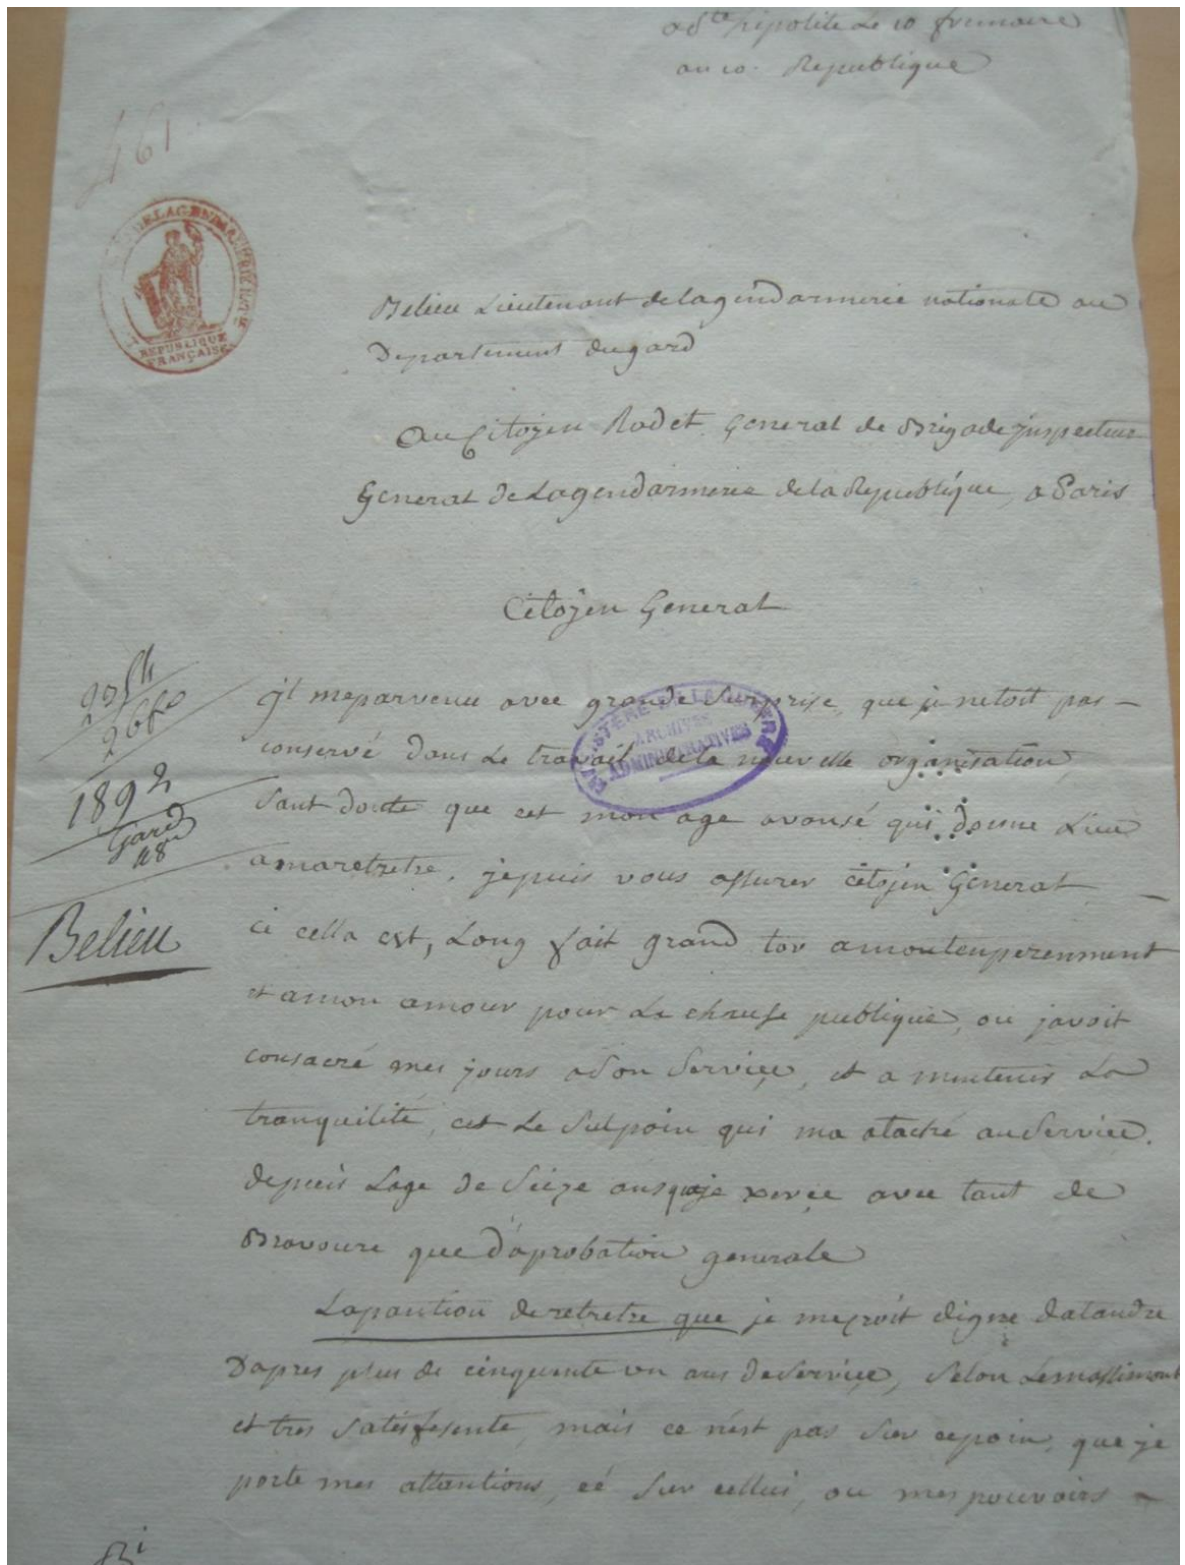 a Ste hipolite Le 10 frimaire
an 10. Republique
461
DE LA GENDARMERIE NATLE
REPUBLIQUE
FRANÇAISE
Belieu Lieutenant de lagendarmerie nationale au
Departement dugard
Au Citoyen Radet General de Brigade jnspecteur
General de Lagendarmerie dela Republique, a Paris
Citoyen General
jl meparvenu avec grande Surprise, que je netoit pas –
MINISTÈRE DE LA GUERRE
ARCHIVES
ADMINISTRATIVES
conservé dans Le travail dela nouvelle organisation,
Sant doute que cet mon age avansé qui donne Lieu
1892
Gard
48
amaretrete. jepuis vous assurer citojen General –
Belieu
ci cella est, Long fait grand tor amontemperemment
et amon amour pour La chause publique, ou javoit
consacré mes jours a Son Service, et a mintenir La
tranquilité, cet Le Sulpoin qui ma ataché auService.
depuis Lage de Seize ansqueje xerce avec tant de
Bravoure que d'aprobation generale
Lapantion deretrete que je mecroit digne datandre
Dapres plus de cinquante un ans deService, Selon
et tres Satesfesente, mais ce nést pas Sur cepoin, que je
porte mes attantions, cé Sur cellui, ou mes pouvoirs –